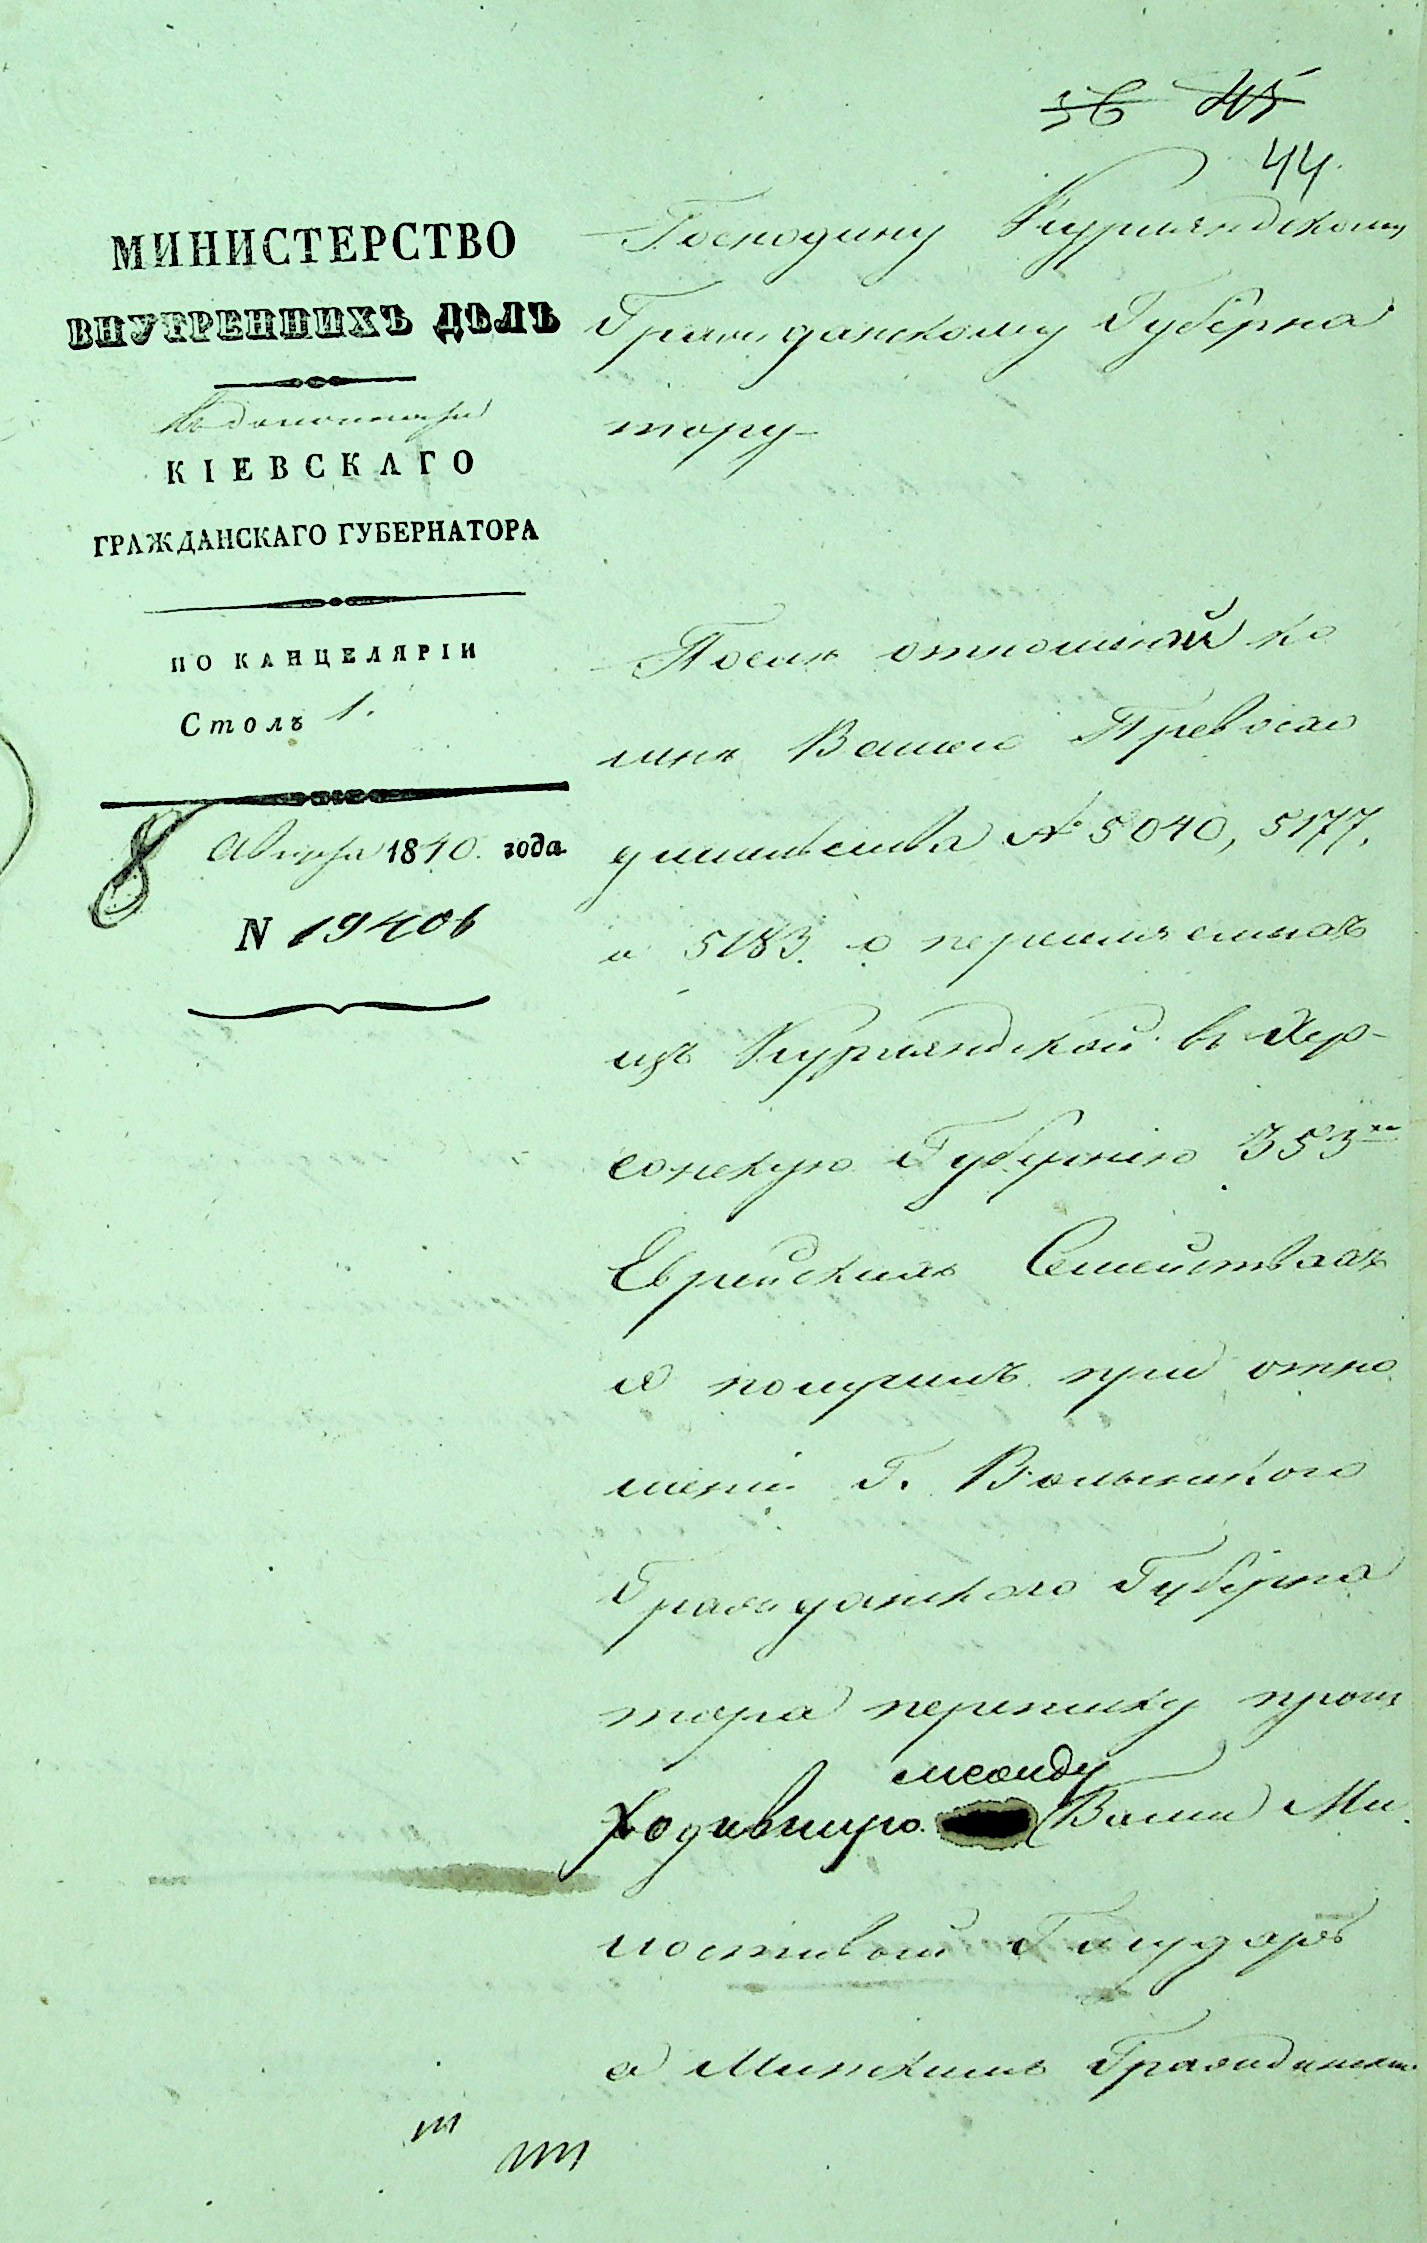 36 45
44
МИНИСТЕРСТВО
ВНУТРЕННИХЪ ДѢЛЪ
КІЕВСКАГО
ГРАЖДАНСКАГО ГУБЕРНАТОРА
ПО КАНЦЕЛЯРІИ
Столъ 1.
8 Августа 1840 года
N 19406
Господину Курляндскому
Гражданскому Губерна
тору
Послѣ отношеній ко
мнѣ Вашего Превосхо
дительства № 5040, 5177,
и 5183. о переселяемыхъ
изъ Курляндской въ Хер-
сонскую Губернію 353хъ
Еврейскихъ Семействахъ
я получилъ при отно
шеніи Г. Волынского
Гражданского Губерна
тора переписку проис
ходившую между Вами Ми
лостивый Государь
и Минскимъ Гражданским